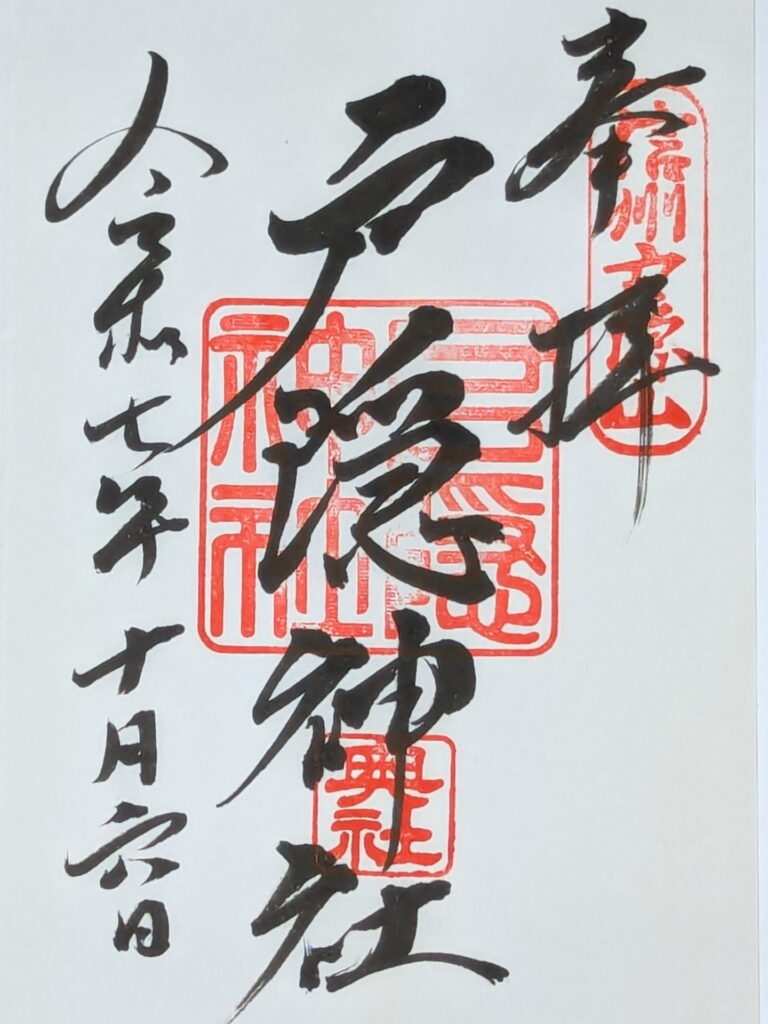 奉拝
信州
戸隠神社
戸隠神社
奥社
令和七年十月六日